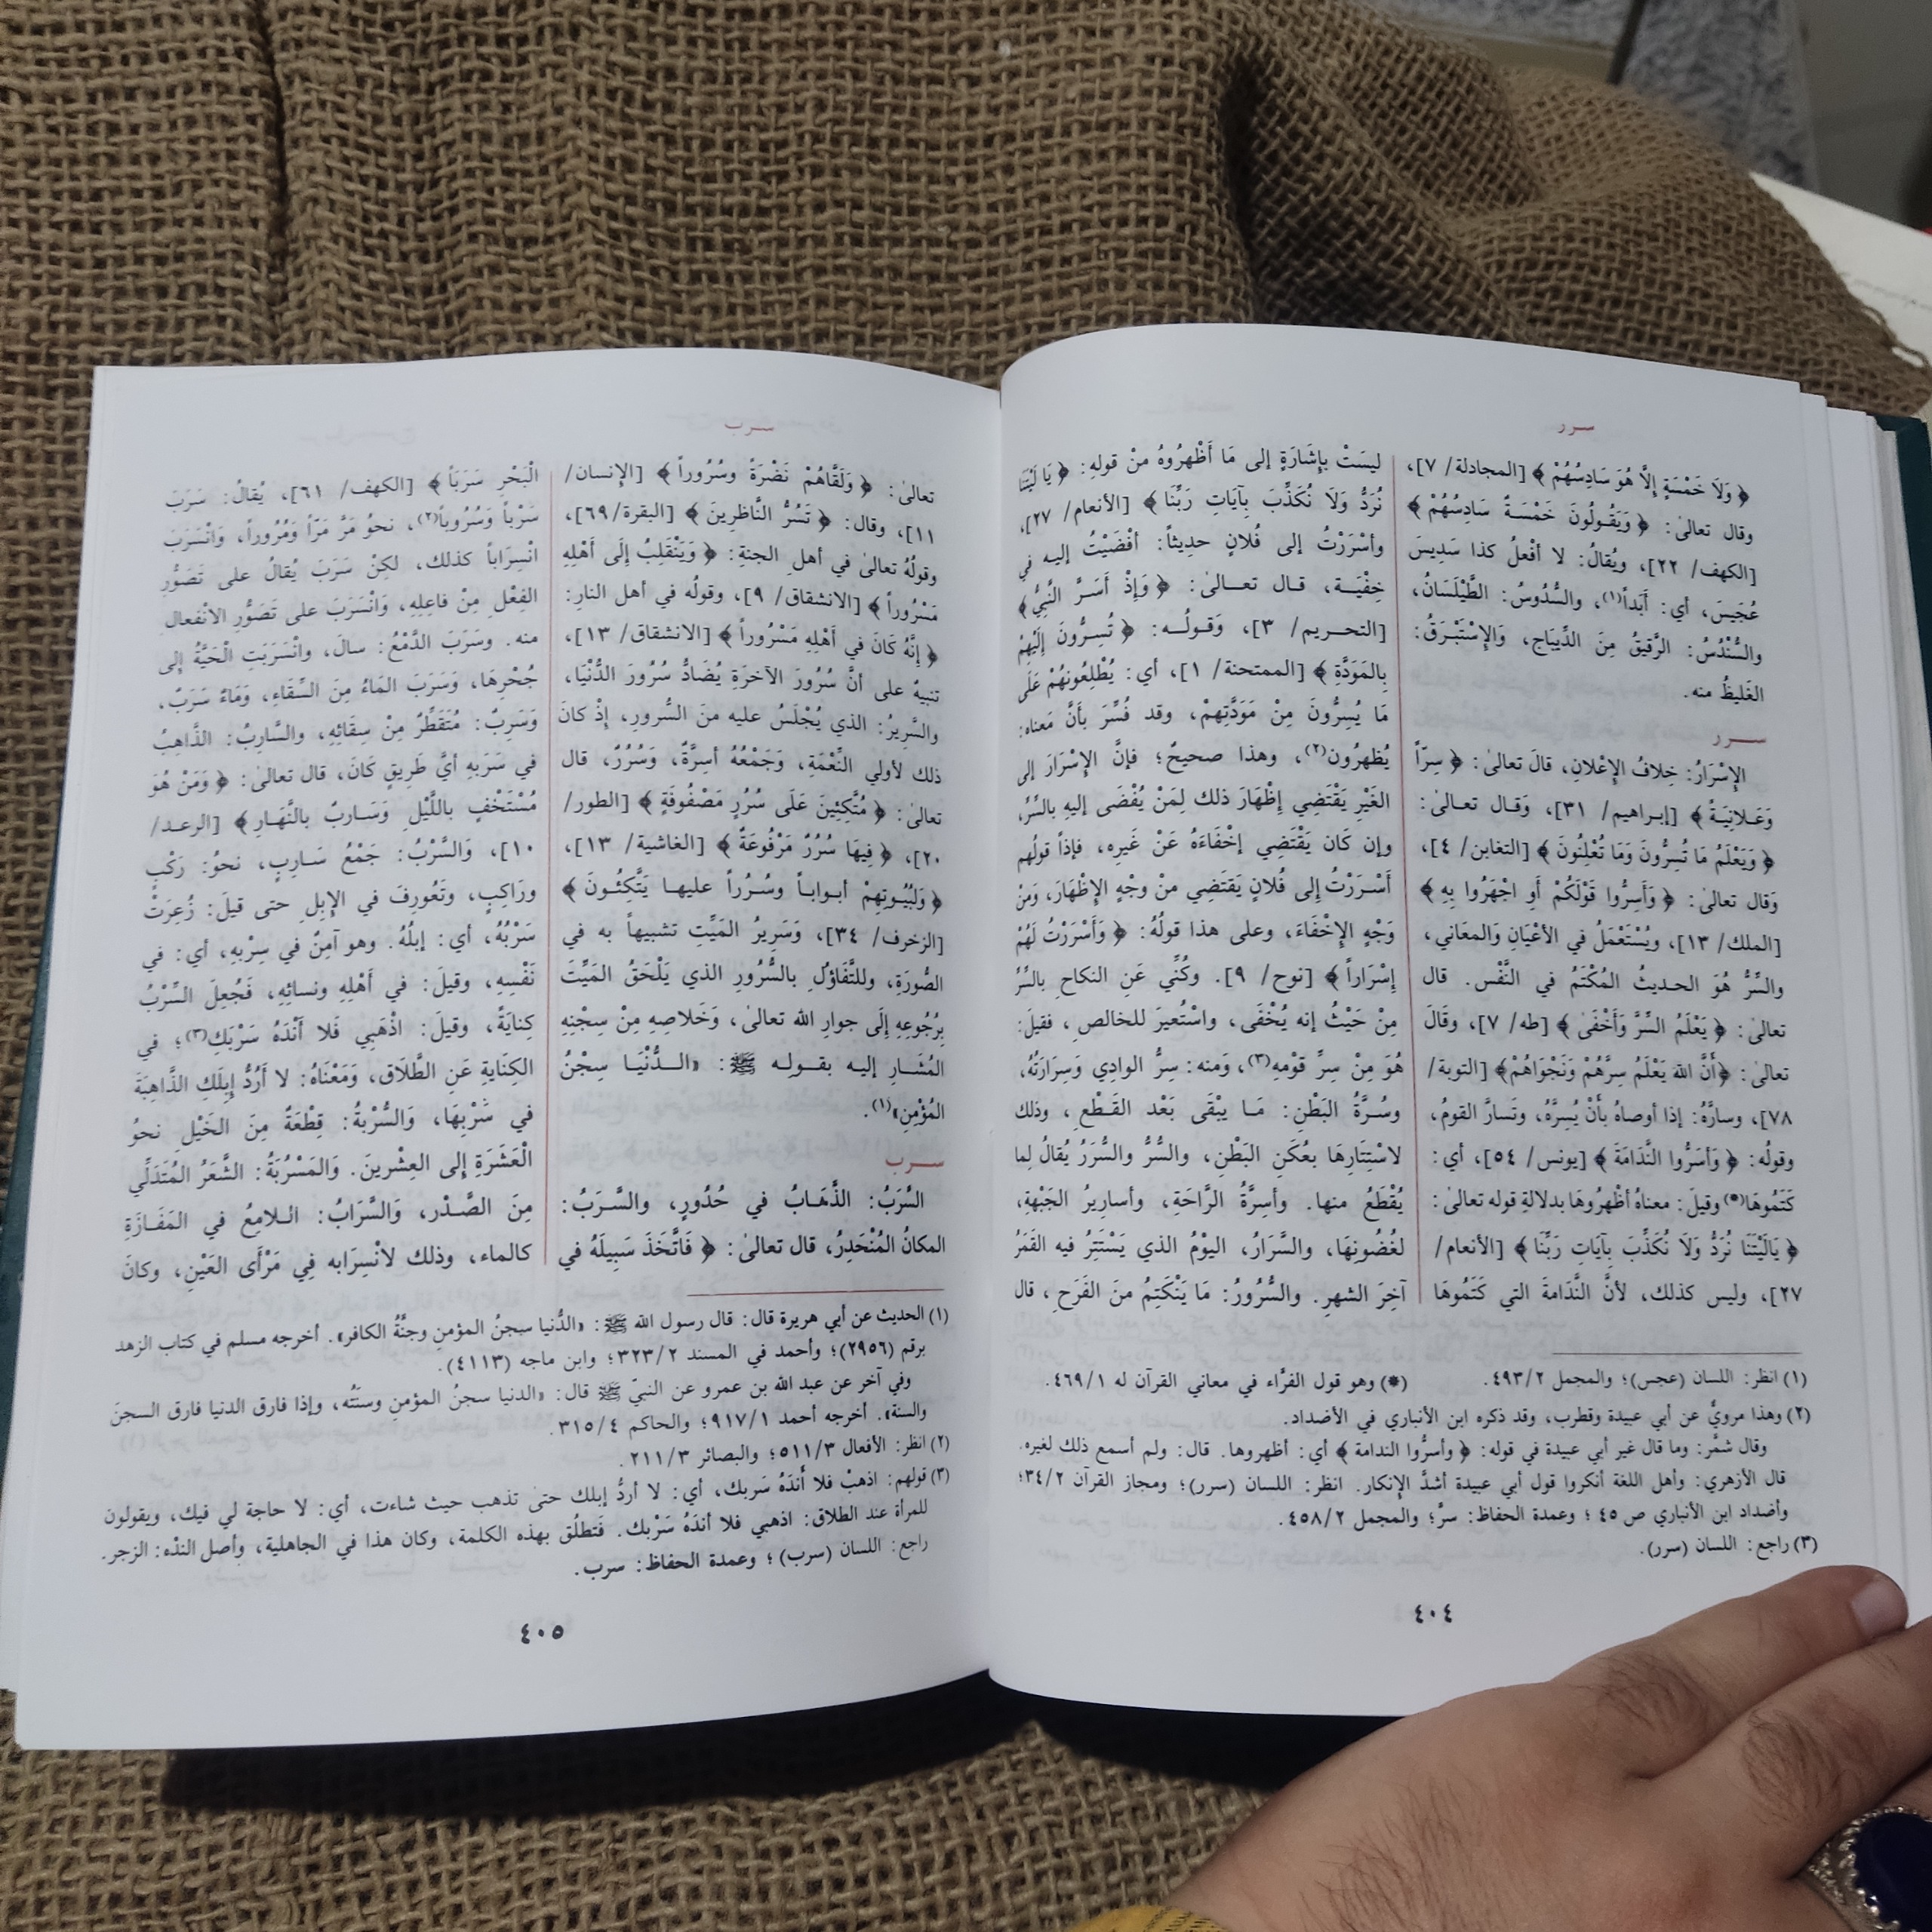 سرر
﴿ وَلَا خَمْسَةٍ إِلَّا هُوَ سَادِسُهُمْ ﴾ [المجادلة/ ٧]،
وقال تعالىٰ: ﴿ وَيَقُولُونَ خَمْسَةٌ سَادِسُهُمْ ﴾
[الكهف/ ٢٢]، ويُقالُ: لا أفْعلُ كذا سَدِيسَ
عُجَيسَ، أي: أبَداً(١)، والسُّدُوسُ: الطَّيْلَسَانُ،
والسُّنْدُسُ: الرَّقيقُ مِنَ الدِّيبَاجِ، وَالإسْتَبْرَقُ:
الغَليظُ منه.
سرر
الإسْرَارُ: خِلافُ الإعْلانِ، قالَ تعالىٰ: ﴿ سِرّاً
وَعَلانِيَةً ﴾ [إبراهيم/ ٣١]، وَقال تعالىٰ:
﴿ وَيَعْلَمُ مَا تُسِرُّونَ وَمَا تُعْلِنُونَ ﴾ [التغابن/ ٤]،
وَقال تعالىٰ: ﴿ وَأَسِرُّوا قَوْلَكُمْ أَوِ اجْهَرُوا بِهِ ﴾
[الملك/ ١٣]، ويُسْتَعْمَلُ في الأعْيَانِ وَالمعَاني،
والسِّرُّ هُوَ الحديثُ المُكْتَمُ في النَّفْس. قال
تعالىٰ: ﴿ يَعْلَمُ السِّرَّ وَأَخْفَىٰ ﴾ [طه/ ٧]، وقَالَ
تعالىٰ: ﴿أَنَّ اللهَ يَعْلَمُ سِرَّهُمْ وَنَجْوَاهُمْ﴾ [التوبة/
٧٨]، وسارَّهُ: إذا أوصاهُ بأنْ يُسِرَّهُ، وتَسارَّ القومُ،
وقولُه: ﴿ وَأَسَرُّوا النَّدَامَةَ ﴾ [يونس/ ٥٤]، أي:
كَتَمُوهَا(*) وقيلَ: معناهُ أظْهَرُوهَا بدلالةِ قوله تعالىٰ:
﴿ يَالَيْتَنَا نُرَدُّ وَلَا نُكَذِّبَ بِآيَاتِ رَبِّنَا ﴾ [الأنعام/
٢٧]، وليس كذلك، لأنَّ النَّدَامةَ التي كَتَمُوهَا
ليسَتْ بإشَارَةٍ إلى مَا أَظْهَرُوهُ منْ قولهِ: ﴿ يَا لَيْتَنَا
نُرَدُّ وَلَا نُكَذِّبَ بِآيَاتِ رَبِّنَا ﴾ [الأنعام/ ٢٧]،
وأسْرَرْتُ إلى فُلانٍ حديثاً: أفْضَيْتُ إليه في
خِفْيَة، قال تعالىٰ: ﴿ وَإِذْ أَسَرَّ النَّبِيُّ ﴾
[التحريم/ ٣]، وَقولُه: ﴿ تُسِرُّونَ إِلَيْهِمْ
بِالمَوَدَّةِ ﴾ [الممتحنة/ ١]، أي: يُطْلِعُونهُمْ عَلَى
مَا يُسِرُّونَ مِنْ مَوَدَّتِهِمْ، وقد فُسِّرَ بأنَّ مَعناه:
يُظهرُون(٢)، وهذا صحيحٌ؛ فإنَّ الإسْرَارَ إلى
الغَيْرِ يَقْتَضِي إظْهَارَ ذلك لِمَنْ يُفْضَى إليهِ بالسِّرِّ،
وإن كَان يَقْتَضِي إخْفَاءَهُ عَنْ غَيرِه، فإذاً قولُهم
أسْرَرْتُ إلى فُلانٍ يَقتَضِي منْ وجْهٍ الإظْهَارَ، ومِنْ
وَجْهٍ الإخْفَاءَ، وعلى هذا قولُهُ: ﴿ وَأَسْرَرْتُ لَهُمْ
إِسْرَاراً ﴾ [نوح/ ٩]. وكُنِّي عَنِ النكاحِ بالسِّرِّ
مِنْ حَيْثُ إنه يُخْفَى، واسْتُعيرَ للخالصِ، فقيلَ:
هُوَ مِنْ سِرِّ قوْمهِ(٣)، وَمنه: سِرُّ الوادِي وَسِرَارَتُه،
وسُرَّةُ البَطْنِ: مَا يبْقَى بَعْد القَطْعِ، وذلك
لاسْتِتَارِهَا بعُكَنِ البَطْنِ، والسُّرُّ والسُّرَرُ يُقالُ لِما
يُقْطَعُ منها. وأسِرَّةُ الرَّاحَةِ، وأساريرُ الجَبْهةِ،
لغُضُونِهَا، والسَّرَارُ، اليوْمُ الذي يَسْتَتِرُ فيه القَمَرُ
آخِرَ الشهرِ. والسُّرُورُ: مَا يَنْكَتِمُ منَ الفَرَحِ، قال
(١) انظر: اللسان (عجس)؛ والمجمل ٤٩٣/٢. (*) وهو قول الفرَّاء في معاني القرآن له ٤٦٩/١.
(٢) وهذا مرويٌّ عن أبي عبيدة وقطرب، وقد ذكره ابن الأنباري في الأضداد.
وقال شمَّر: وما قال غير أبي عبيدة في قوله: ﴿ وأسرُّوا الندامة ﴾ أي: أظهروها. قال: ولم أسمع ذلك لغيره.
قال الأزهري: وأهل اللغة أنكروا قول أبي عبيدة أشدَّ الإنكار. انظر: اللسان (سرر)؛ ومجاز القرآن ٣٤/٢؛
وأضداد ابن الأنباري ص ٤٥؛ وعمدة الحفاظ: سرَّ؛ والمجمل ٤٥٨/٢.
(٣) راجع: اللسان (سرر).
٤٠٤
سرب
تعالىٰ: ﴿ وَلَقَّاهُمْ نَضْرَةً وسُرُوراً ﴾ [الإنسان/
١١]، وقال: ﴿ تَسُرُّ النَّاظِرِينَ ﴾ [البقرة/ ٦٩]،
وقولُهُ تعالىٰ في أهلِ الجنةِ: ﴿ وَيَنْقَلِبُ إلَى أَهْلِهِ
مَسْرُوراً ﴾ [الانشقاق/ ٩]، وقولُه في أهل النارِ:
﴿ إِنَّهُ كَانَ في أَهْلِهِ مَسْرُوراً ﴾ [الانشقاق/ ١٣]،
تنبيهٌ على أنَّ سُرُورَ الآخرَةِ يُضَادُّ سُرُورَ الدُّنْيَا،
والسَّرِيرُ: الذي يُجْلَسُ عليه منَ السُّرورِ، إذْ كانَ
ذلك لأولي النِّعْمَةِ، وَجَمْعُهُ أسِرَّةٌ، وَسُرُرٌ، قال
تعالىٰ: ﴿ مُتَّكِئِينَ عَلَى سُرُرٍ مَصْفُوفَةٍ ﴾ [الطور/
٢٠]، ﴿ فِيهَا سُرُرٌ مَرْفُوعَةٌ ﴾ [الغاشية/ ١٣]،
﴿ وَلِبُيُوتِهِمْ أبواباً وسُرُراً عليها يَتَّكِئُونَ ﴾
[الزخرف/ ٣٤]، وَسَرِيرُ المَيِّتِ تشبيهاً به في
الصُّورَةِ، وللتَّفَاؤلِ بالسُّرُورِ الذي يَلْحَقُ المَيِّتَ
بِرُجُوعِهِ إلَى جوارِ الله تعالىٰ، وَخَلاصِهِ مِنْ سِجْنِهِ
المُشَارِ إليه بقوله ﷺ: «الدُّنْيَا سِجْنُ
المُؤْمِنِ»(١).
سرب
السَّرَبُ: الذَّهَابُ في حُدُورٍ، والسَّرَبُ:
المكانُ المُنْحَدِرُ، قال تعالىٰ: ﴿ فَاتَّخَذَ سَبِيلَهُ في
الْبَحْرِ سَرَبَاً ﴾ [الكهف/ ٦١]، يُقالُ: سَرَبَ
سَرْباً وَسُرُوباً(٢)، نحوُ مَرَّ مَرّاً وَمُرُوراً، وَانْسَرَبَ
انْسِرَاباً كذلك، لكِنْ سَرَبَ يُقالُ على تَصَوُّرِ
الفِعْلِ مِنْ فاعِلِهِ، وَانْسَرَبَ على تَصَوُّرِ الانْفَعالِ
منه. وسَرَبَ الدَّمْعُ: سالَ، وانْسَرَبَتِ الْحَيَّةُ إلى
جُحْرِهَا، وَسَرَبَ المَاءُ مِنَ السِّقَاءِ، وَمَاءٌ سَرَبٌ،
وَسَرِبٌ: مُتَقَطِّرٌ مِنْ سِقَائِهِ، والسَّارِبُ: الذَّاهِبُ
في سَرَبِهِ أيَّ طَرِيقٍ كَانَ، قال تعالىٰ: ﴿ وَمَنْ هُوَ
مُسْتَخْفٍ بِاللَّيْلِ وَسَاربٌ بالنَّهَارِ ﴾ [الرعد/
١٠]، وَالسَّرْبُ: جَمْعُ سَاربٍ، نحوُ: رَكْبٍ
ورَاكِبٍ، وتَعُورِفَ في الإبِلِ حتى قيلَ: زُعِرَتْ
سَرْبُهُ، أي: إبلُهُ. وهو آمِنٌ في سِرْبهِ، أي: في
نَفْسِهِ، وقيلَ: في أَهْلِهِ ونسائِهِ، فَجُعِلَ السِّرْبُ
كِنايَةً، وقيلَ: اذْهَبِي فَلا أَنْدَهُ سَرْبَكِ(٣)؛ في
الكِنَايَةِ عَنِ الطَّلاَقِ، وَمَعْنَاهُ: لا أَرُدُّ إبِلَكِ الذَّاهِبَةَ
في سَرْبِهَا، وَالسُّرْبَةُ: قِطْعَةٌ مِنَ الخَيْلِ نحوُ
الْعَشَرَةِ إلى العِشْرِينَ. وَالمَسْرُبَةُ: الشَّعَرُ المُتَدَلِّي
مِنَ الصَّدْرِ، وَالسَّرَابُ: اللامِعُ في المَفَازَةِ
كالماء، وذلك لانْسِرَابه فِي مَرْأى العَيْنِ، وكانَ
(١) الحديث عن أبي هريرة قال: قال رسول الله ﷺ: «الدُّنيا سجنُ المؤمنِ وجنَّةُ الكافر». أخرجه مسلم في كتاب الزهد
برقم (٢٩٥٦)؛ وأحمد في المسند ٣٢٣/٢؛ وابن ماجه (٤١١٣).
وفي آخر عن عبد الله بن عمرو عن النبيّ ﷺ قال: «الدنيا سجنُ المؤمنِ وسنَتُه، وإذا فارق الدنيا فارق السجنَ
والسنة». أخرجه أحمد ٩١٧/١؛ والحاكم ٣١٥/٤.
(٢) انظر: الأفعال ٥١١/٣؛ والبصائر ٢١١/٣.
(٣) قولهم: اذهبْ فلا أَندَهُ سَربك، أي: لا أردُّ إبلك حتىٰ تذهب حيث شاءت، أي: لا حاجة لي فيك، ويقولون
للمرأة عند الطلاق: اذهبي فلا أندَهُ سَرْبك. فَتطلُق بهذه الكلمة، وكان هذا في الجاهلية، وأصل النَدْه: الزجر.
راجع: اللسان (سرب)؛ وعمدة الحفاظ: سرب.
٤٠٥